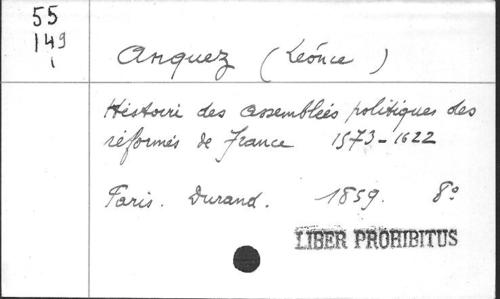 55
149
1
Anquez (Léonce)
Histoire des assemblées politiques des
réformés de France 1573-1622
Paris. Durand. 1859. 8º
LIBER PROHIBITUS